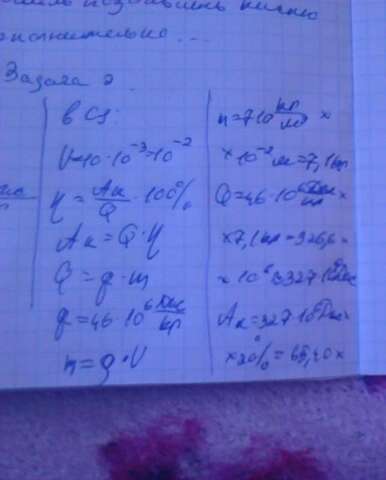 Задача 2.
в СИ:
V=10·10⁻³=10⁻²
η=Aп/Q·100%
Aп=Q·η
Q=q·m
q=46·10⁶ Дж/кг
m=ρ·V
m=710 кг/м³ ×
×10⁻² м=7,1кг
Q=46·10⁶ Дж/кг ×
×7,1кг=326,6×
×10⁶≈327·10⁶Дж
Aп=327·10⁶Дж×
×20%=65,40×